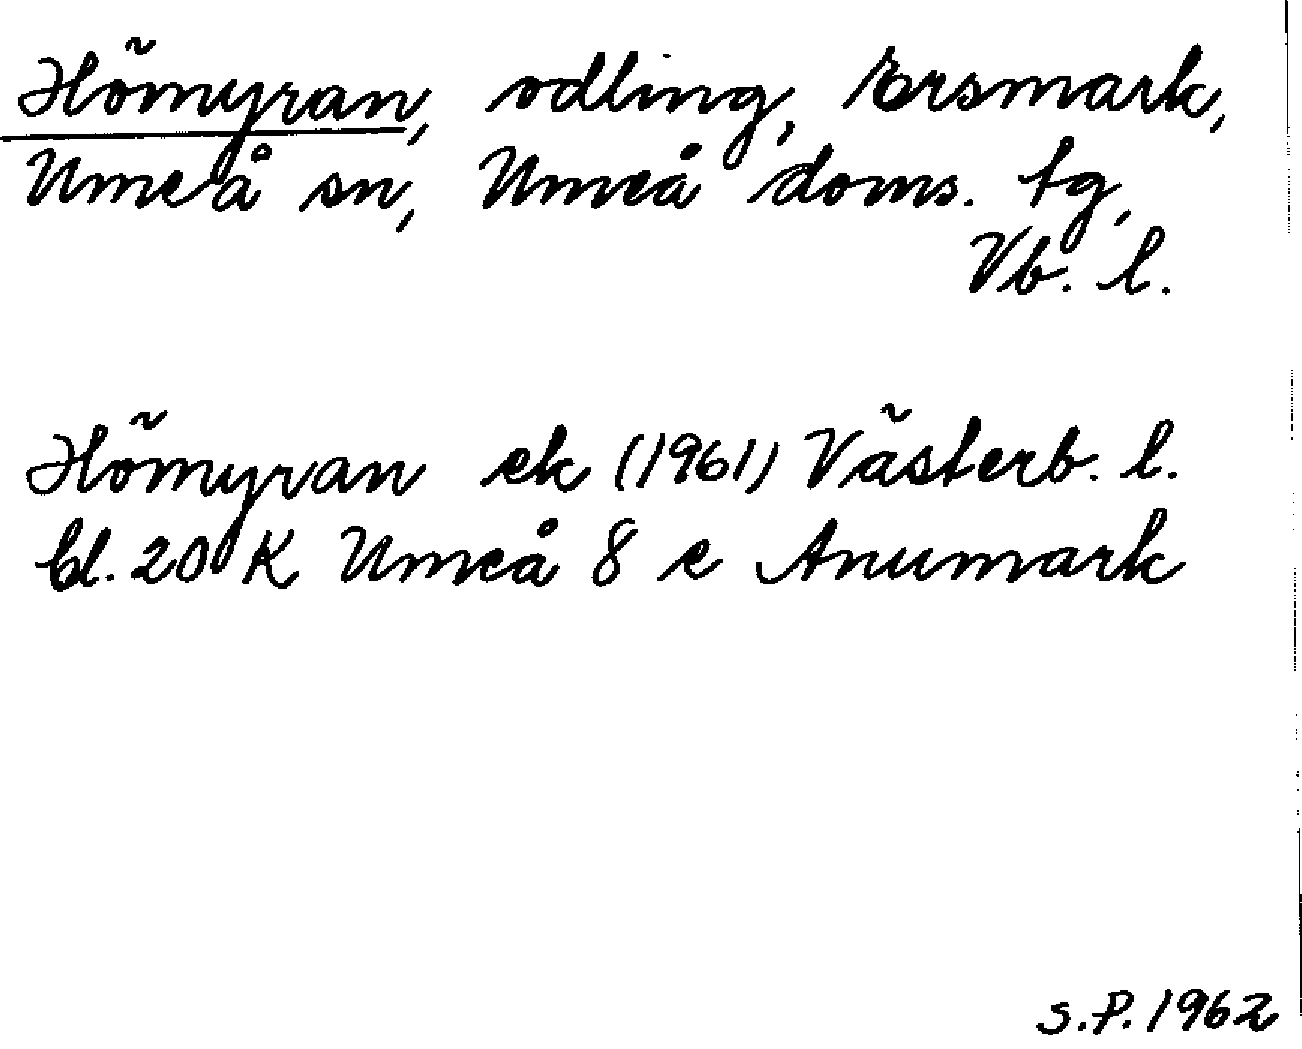 Hömyran, odling, Ersmark,
Umeå sn, Umeå doms. tg,
Vb. l.
Hömyran ek (1961) Västerb. l.
bl. 20 K Umeå 8 e Anumark
S.P. 1962